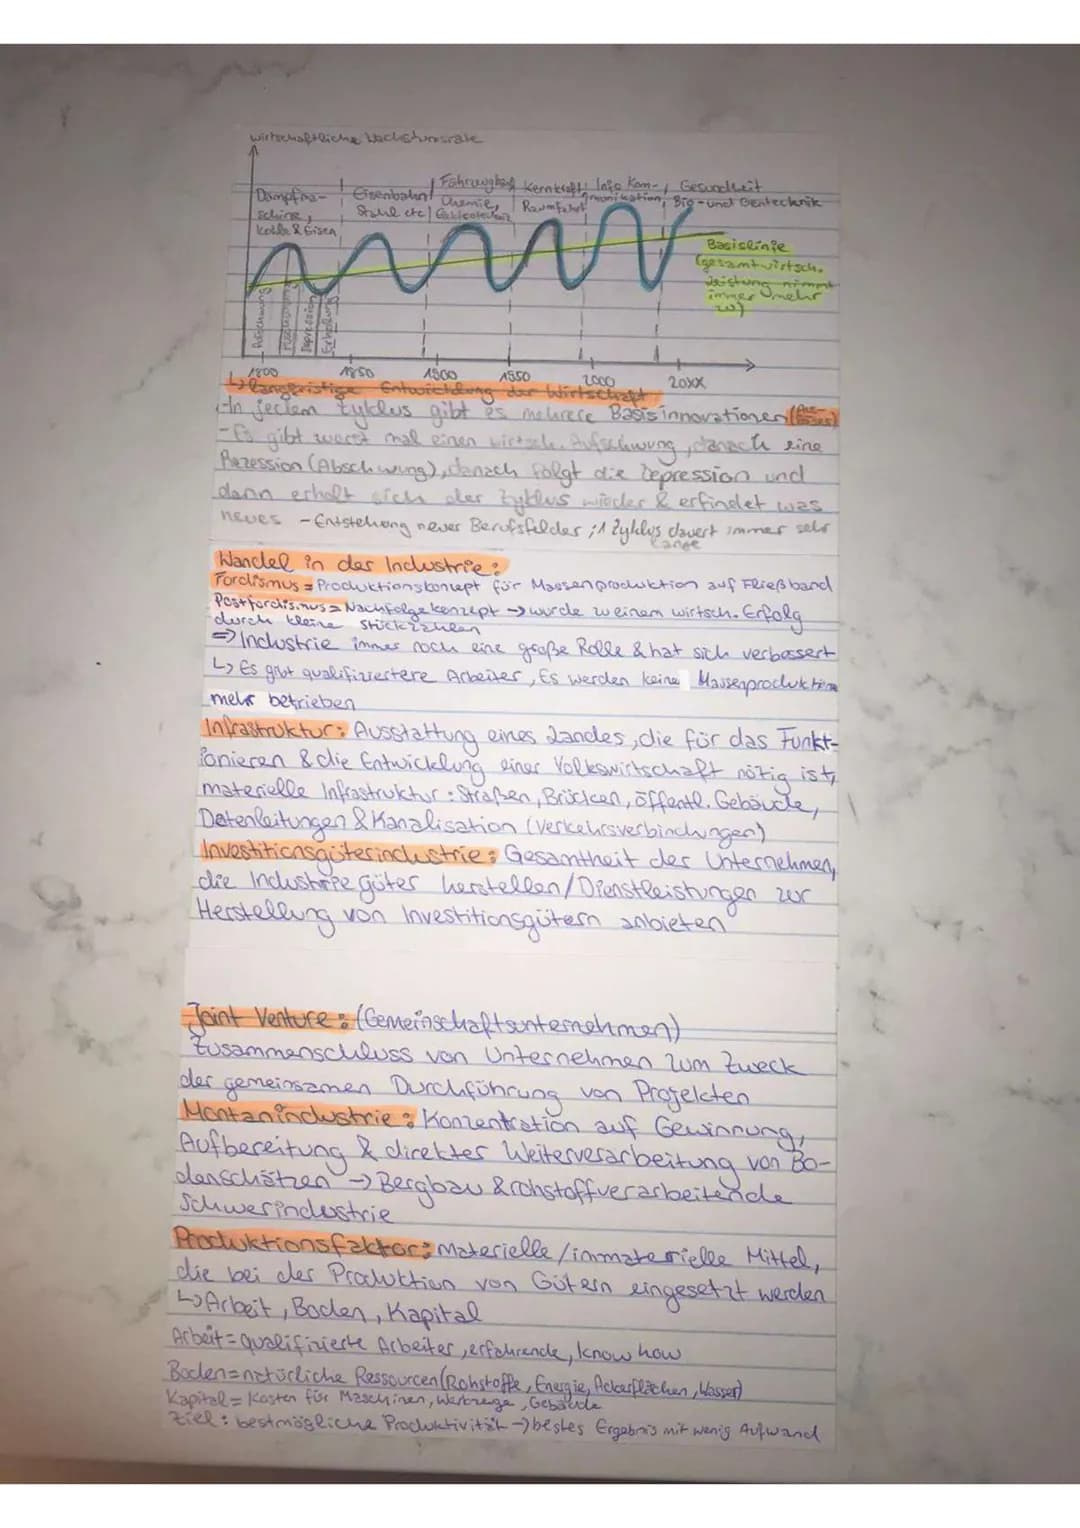 wirtschaftliche Wachstumsrate
Dampfma- Eisenbahn Fahrzeugbau Kernkraft Info Kom- Gesundheit
schine, Stahl etc Chemie, Raumfahrt munikation Bio- und Gentechnik
Kohle & Eisen
Basislinie
(gesamtwirtsch.
Leistung nimmt
immer mehr
zu)
Aufschwung
Rezession
Depression
Erholung
1800 1850 1900 1950 2000 20XX
↳ langfristige Entwicklung der Wirtschaft
-In jedem Zyklus gibt es mehrere Basisinnovationen
-Es gibt worst mal einen wirtsch. Aufschwung, danach eine
Rezession (Abschwung), danach folgt die Depression und
dann erholt sich der Zyklus wieder & erfindet was
neues - Entstehung neuer Berufsfelder ; 1 Zyklus dauert immer sehr
lange
Wandel in der Industrie:
Fordismus = Produktionskonzept für Massenproduktion auf Fließband
Postfordismus = Nachfolgekonzept → wurde zu einem wirtsch. Erfolg
durch kleine Stückzahlen
⇒ Industrie immer noch eine große Rolle & hat sich verbessert
↳ Es gibt qualifiziertere Arbeiter, Es werden keine Massenproduktion
mehr betrieben
Infrastruktur: Ausstattung eines Landes, die für das Funkt-
ionieren & die Entwicklung einer Volkswirtschaft nötig ist,
materielle Infrastruktur: Straßen, Brücken, öffentl. Gebäude,
Datenleitungen & Kanalisation (Verkehrsverbindungen)
Investitionsgüterindustrie: Gesamtheit der Unternehmen,
die Industriegüter herstellen/Dienstleistungen zur
Herstellung von Investitionsgütern anbieten
Joint Venture: (Gemeinschaftsunternehmen)
Zusammenschluss von Unternehmen zum Zweck
der gemeinsamen Durchführung von Projekten
Montanindustrie: Konzentration auf Gewinnung,
Aufbereitung & direktes Weiterverarbeitung von Bo-
denschätzen → Bergbau & rohstoffverarbeitende
Schwerindustrie
Produktionsfaktor: Materielle/immaterielle Mittel,
die bei der Produktion von Gütern eingesetzt werden
↳ Arbeit, Boden, Kapital
Arbeit = qualifizierte Arbeiter, erfahrende, know how
Boden = natürliche Ressourcen (Rohstoffe, Energie, Ackerflächen, Wasser)
Kapital = Kosten für Maschinen, Werkzeuge, Gebäude
Ziel: bestmögliche Produktivität → bestes Ergebnis mit wenig Aufwand